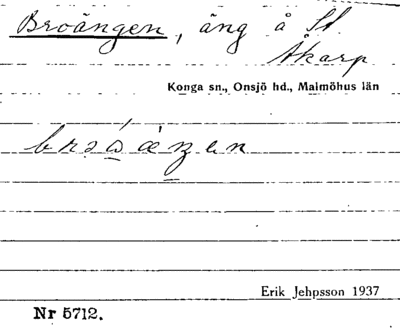 Broängen, äng å St.
Åkarp
Konga sn., Onsjö hd., Malmöhus län
Erik Jehpsson 1937
Nr 5712.